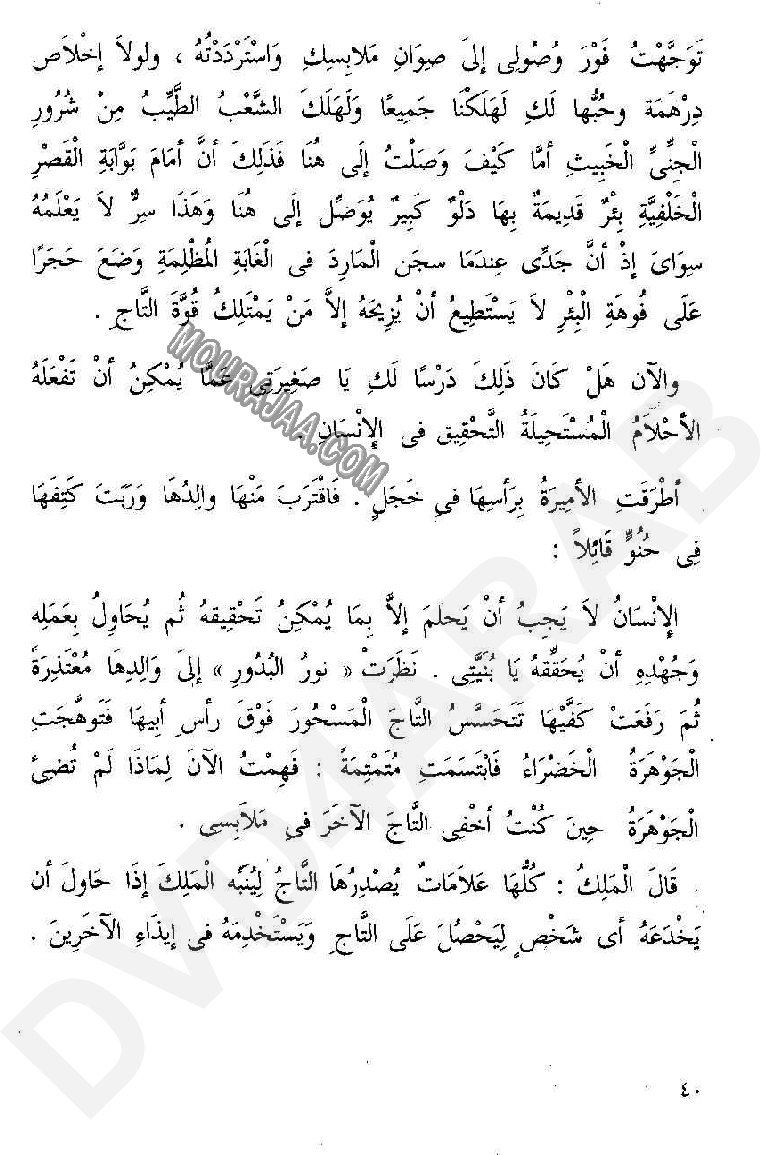 تَوَجَّهْتُ فَوْرَ وُصُولِى إلىَ صِيوَانِ مَلابِسِكِ وَاسْتَرْدَدْتُهُ ، ولولاَ إخْلاَص
دِرْهَمَة وحُبُّها لَكِ لَهَلَكْنَا جَمِيعًا وَلَهَلَكَ الشَّعْبُ الطَّيِّبُ مِنْ شُرُورِ
الْجِنِّىِّ الْخَبِيثِ أمَّا كَيْفَ وَصَلْتُ إلَى هُنَا فَذَلِكَ أنَّ أمَامَ بَوَّابَةِ الْقَصْرِ
الْخَلْفِيَّةِ بِئْرٌ قَدِيمَةٌ بِهَا دَلْوٌ كَبِيرٌ يُوَصِّل إلَى هُنَا وَهَذَا سِرٌّ لاَ يَعْلَمُهُ
سِوَاىَ إذْ أنَّ جَدِّى عِندَمَا سجَن الْمَارِدَ فى الْغَابَةِ الْمُظْلِمَةِ وَضَعَ حَجَرًا
عَلَى فُوهَةِ الْبِئْرِ لاَ يَسْتَطِيعُ أنْ يُزِيحَهُ إلاَّ مَنْ يَمْتَلِكُ قُوَّةَ التَّاجِ .
والآن هَلْ كَانَ ذَلِكَ دَرْسًا لَكِ يَا صَغِيرَتِى عَمَّا يُمْكِنُ أنْ تَفْعَلَهُ
الأحْلاَمُ الْمُسْتَحِيلَةُ التَّحْقِيقِ فى الإنْسَانِ .
أطْرَقَتِ الأمِيرَةُ بِرَأسِهَا فىِ خَجَلٍ . فَاقْتَرَبَ مَنْهَا والِدُهَا وَرَبَتَ كَتِفَهَا
فِى حُنُوٍّ قَائِلاً :
الإنْسَانُ لاَ يَجِبُ أنْ يَحلمَ إلاَّ بِمَا يُمْكِنُ تَحْقِيقهُ ثُم يُحَاوِلُ بِعَمَلِه
وَجُهْدِهِ أنْ يُحَقِّقهُ يَا بُنَيَّتِى . نَظَرَتْ « نورُ البُدُورِ » إلىَ وَالِدِهَا مُعْتَذِرَةً
ثُمَ رَفَعَتْ كَفَّيْهَا تَتَحَسَّسُ التَّاجَ الْمَسْحُورَ فَوْقَ رأسِ أبِيهَا فَتَوهَّجَتِ
الْجَوْهَرَةُ الْخَضْرَاءُ فَابْتَسَمَتِ مُتَمْتِمَةً : فَهِمْتُ الآنَ لِمَاذَا لَمْ تُضِئ
الْجَوْهَرَةُ حِينَ كُنْتُ أخْفِى التَّاجَ الآخَرَ فىِ مَلاَبِسِى .
قَالَ الْمَلِكُ : كُلُّهَا عَلاَمَاتٌ يُصْدِرُهَا التَّاجُ لِيُنَبِّه الْمَلِكَ إذَا حَاوَلَ أن
يَخْدَعَهُ أى شَخْصٍ لِيَحْصُلَ عَلَى التَّاجِ وَيَسْتَخْدِمَهُ فى إيذَاءِ الآخَرِينَ .
٤٠
MOURAJAA.COM
DVD4ARAB